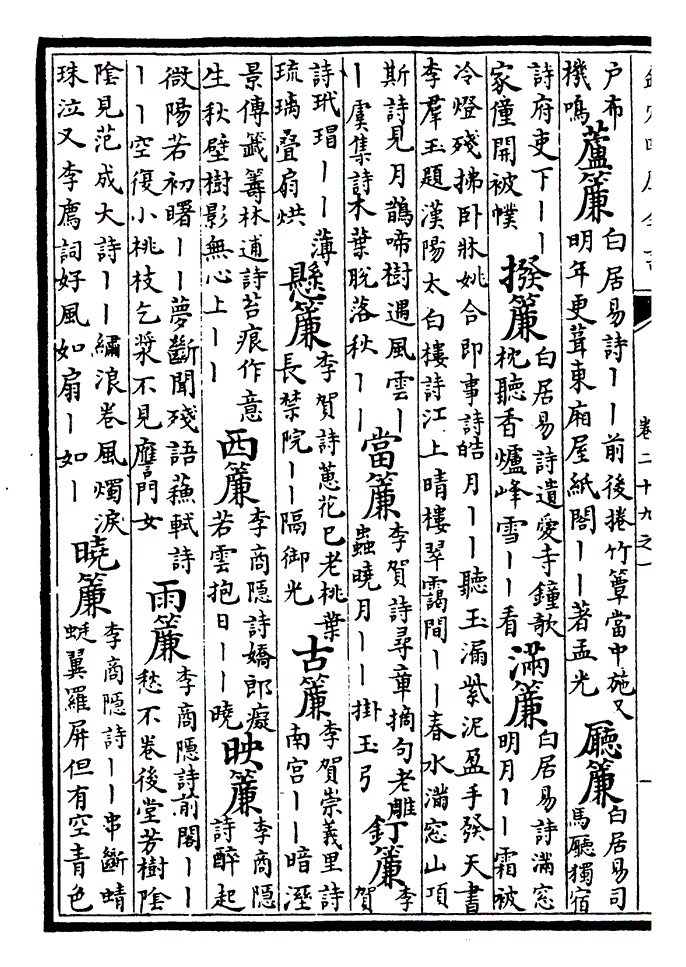 欽定四庫全書
卷二十九之一
户布
機鳴
蘆簾
白居易詩||前後捲竹簟當中施又
明年更葺東廂屋紙閣||著孟光
廳簾
白居易司
馬廳獨宿
詩府吏下||
家僮開被幞
撥簾
白居易詩遺愛寺鐘欹
枕聽香爐峰雪||看
滿簾
白居易詩滿窓
明月||霜被
冷燈殘拂卧牀姚合即事詩皓月||聽玉漏紫泥盈手發天書
李羣玉題漢陽太白樓詩江上晴樓翠靄間||春水滿窓山項
斯詩見月鵲啼樹遇風雲|
|虞集詩木葉脫落秋||
當簾
李賀詩尋章摘句老雕
蟲曉月||掛玉弓
釘簾
李
賀
詩玳瑁||薄
琉璃疊扇烘
懸簾
李賀詩蕙花已老桃葉
長禁院||隔御光
古簾
李賀崇義里詩
南宮||暗溼
景傳籤籌林逋詩苔痕作意
生秋壁樹影無心上||
西簾
李商隱詩嬌郎癡
若雲抱日||曉
映簾
李商隱
詩醉起
微陽若初曙||夢斷聞殘語蘓軾詩
||空復小桃枝乞漿不見門女
雨簾
李商隱詩前閣||
愁不卷後堂芳樹陰
陰見范成大詩||繡浪卷風燭淚
珠泣又李廌詞好風如扇|如|
曉簾
李商隱詩||串斷蜻
蜓翼羅屏但有空青色